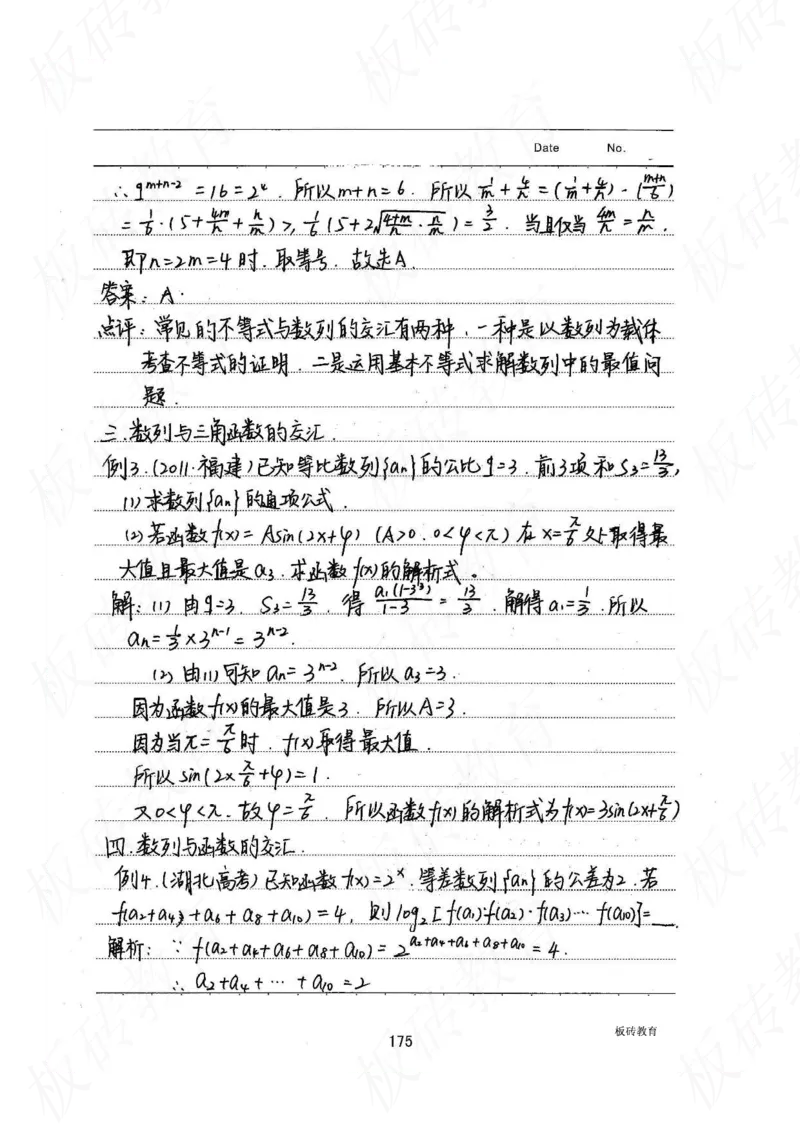 Date No.
∴ q^{m+n-2} = 16 = 2^4. 所以 m+n=6. 所以 1/m + 4/n = (1/m + 4/n)·(m+n/6)
= 1/6·(5 + 4m/n + n/m) ≥ 1/6 (5+2√(4+m/n · n/m)) = 3/2. 当且仅当 4m/n = n/m,
即n=2m=4时.取等号.故选A.
答案:A.
点评:常见的不等式与数列的交汇有两种,一种是以数列为载体
考查不等式的证明.二是运用基本不等式求解数列中的最值问
题.
三.数列与三角函数的交汇.
例3.(2011·福建)已知等比数列{an}的公比q=3.前3项和S3=13/3,
(1)求数列{an}的通项公式.
(2)若函数f(x)=Asin(2x+φ) (A>0.0<φ<π)在x=π/6处取得最
大值且最大值是a3.求函数f(x)的解析式。
解:(1)由q=3. S3=13/3.得 a1(1-3^3)/1-3 = 13/3.解得a1=1/3.所以
an=1/3×3^{n-1}=3^{n-2}.
(2)由(1)可知an=3^{n-2}.所以a3=3.
因为函数f(x)的最大值是3.所以A=3.
因为当x=π/6时.f(x)取得最大值.
所以sin(2×π/6+φ)=1.
又0<φ<π.故φ=π/6.所以函数f(x)的解析式为f(x)=3sin(2x+π/6)
四.数列与函数的交汇.
例4.(湖北高考)已知函数f(x)=2^x.等差数列{an}的公差为2.若
f(a2+a4+a6+a8+a10)=4,则log2[f(a1)·f(a2)·f(a3)…f(a10)]=__.
解析:∵f(a2+a4+a6+a8+a10)=2^{a2+a4+a6+a8+a10}=4.
∴a2+a4+…+a10=2
板砖教育
175